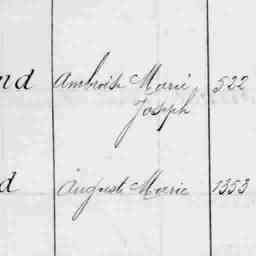 nd Ambroise Marie 522
Joseph
d August Marie 1353